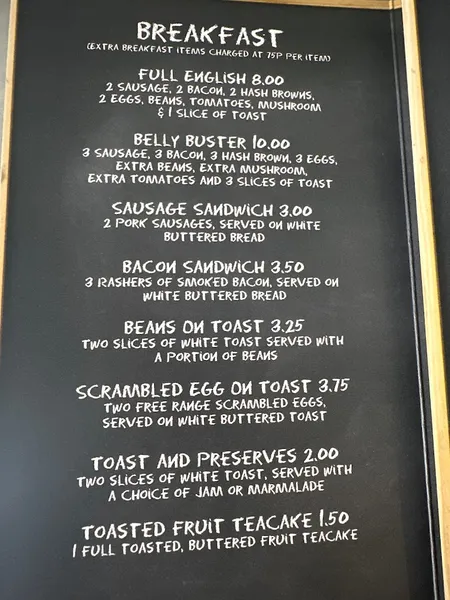 BREAKFAST
(EXTRA BREAKFAST ITEMS CHARGED AT 75P PER ITEM)
FULL ENGLISH 8.00
2 SAUSAGE, 2 BACON, 2 HASH BROWNS,
2 EGGS, BEANS, TOMATOES, MUSHROOM
& 1 SLICE OF TOAST
BELLY BUSTER 10.00
3 SAUSAGE, 3 BACON, 3 HASH BROWN, 3 EGGS,
EXTRA BEANS, EXTRA MUSHROOM,
EXTRA TOMATOES AND 3 SLICES OF TOAST
SAUSAGE SANDWICH 3.00
2 PORK SAUSAGES, SERVED ON WHITE
BUTTERED BREAD
BACON SANDWICH 3.50
3 RASHERS OF SMOKED BACON, SERVED ON
WHITE BUTTERED BREAD
BEANS ON TOAST 3.25
TWO SLICES OF WHITE TOAST SERVED WITH
A PORTION OF BEANS
SCRAMBLED EGG ON TOAST 3.75
TWO FREE RANGE SCRAMBLED EGGS,
SERVED ON WHITE BUTTERED TOAST
TOAST AND PRESERVES 2.00
TWO SLICES OF WHITE TOAST, SERVED WITH
A CHOICE OF JAM OR MARMALADE
TOASTED FRUIT TEACAKE 1.50
1 FULL TOASTED, BUTTERED FRUIT TEACAKE